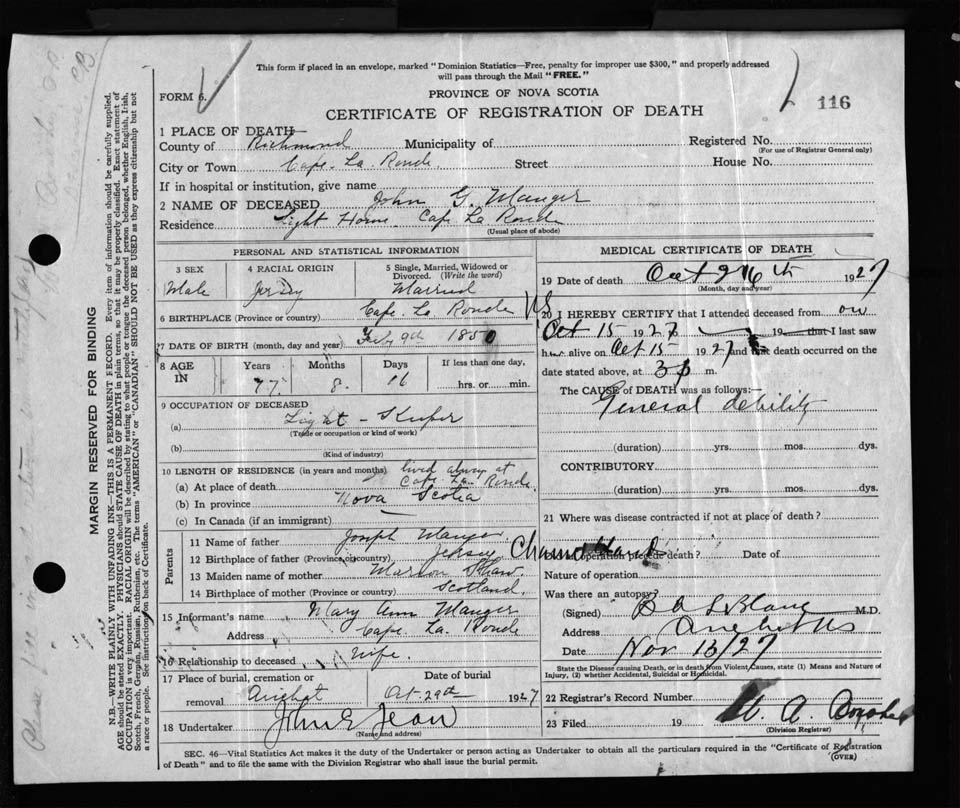 This form if placed in an envelope, marked "Dominion Statistics—Free, penalty for improper use $300," and properly addressed
will pass through the Mail "FREE."
FORM 6.
PROVINCE OF NOVA SCOTIA
CERTIFICATE OF REGISTRATION OF DEATH
116
1 PLACE OF DEATH
County of Richmond Municipality of Registered No.
(For use of Registrar General only)
City or Town Cape La Ronde Street House No.
If in hospital or institution, give name
2 NAME OF DECEASED John G. Manger
Residence Light House Cape La Ronde
(Usual place of abode)
PERSONAL AND STATISTICAL INFORMATION
3 SEX 4 RACIAL ORIGIN 5 Single, Married, Widowed or Divorced. (Write the word)
Male Jersey Married
6 BIRTHPLACE (Province or country) Cape La Ronde NS
7 DATE OF BIRTH (month, day and year) 9th 1850
8 AGE IN Years Months Days If less than one day,
77 8 16 hrs. or min.
9 OCCUPATION OF DECEASED
(a) Light-Keeper
(Trade or occupation or kind of work)
(b)
(Kind of industry)
10 LENGTH OF RESIDENCE (in years and months)
(a) At place of death lived always at Cape La Ronde
(b) In province Nova Scotia
(c) In Canada (if an immigrant)
Parents
11 Name of father Joseph Manger
12 Birthplace of father (Province or country) Jersey Channel Island
13 Maiden name of mother Marion Shaw
14 Birthplace of mother (Province or country) Scotland
15 Informant's name Mary Ann Manger
Address Cape La Ronde
16 Relationship to deceased Wife.
17 Place of burial, cremation or removal Date of burial
Arichat Oct 29th 1927
18 Undertaker John E Jean
(Name and address)
MEDICAL CERTIFICATE OF DEATH
19 Date of death Oct 26th 1927
(Month, day and year)
20 I HEREBY CERTIFY that I attended deceased from on
Oct 15 1927 19 that I last saw
him alive on Oct 15 1927 and that death occurred on the
date stated above, at 3 m.
The CAUSE of DEATH was as follows:—
General debility
(duration) yrs. mos. dys.
CONTRIBUTORY
(duration) yrs. mos. dys.
21 Where was disease contracted if not at place of death?
Did operation precede death? Date of
Nature of operation
Was there an autopsy?
(Signed) B A LeBlanc M.D.
Address Arichat NS
Date Nov 13/27
State the Disease causing Death, or in death from Violent Causes, state (1) Means and Nature of Injury, (2) whether Accidental, Suicidal or Homicidal.
22 Registrar's Record Number
23 Filed 19
(Division Registrar)
SEC. 46—Vital Statistics Act makes it the duty of the Undertaker or person acting as Undertaker to obtain all the particulars required in the "Certificate of Registration
of Death" and to file the same with the Division Registrar who shall issue the burial permit.
(OVER)
MARGIN RESERVED FOR BINDING
N.B.—WRITE PLAINLY WITH UNFADING INK—THIS IS A PERMANENT RECORD. Every item of information should be carefully supplied.
AGE should be stated EXACTLY. PHYSICIANS should STATE CAUSE OF DEATH in plain terms, so that it may be properly classified. Exact statement of
OCCUPATION is very important. RACIAL ORIGIN will be described by stating to what people or tongue the deceased person belonged, whether English, Irish,
Scotch, French, German, Russian, Ruthenian, etc. The terms "AMERICAN" or "CANADIAN" SHOULD NOT BE USED as they express citizenship but not
a race or people. See instructions on back of Certificate.